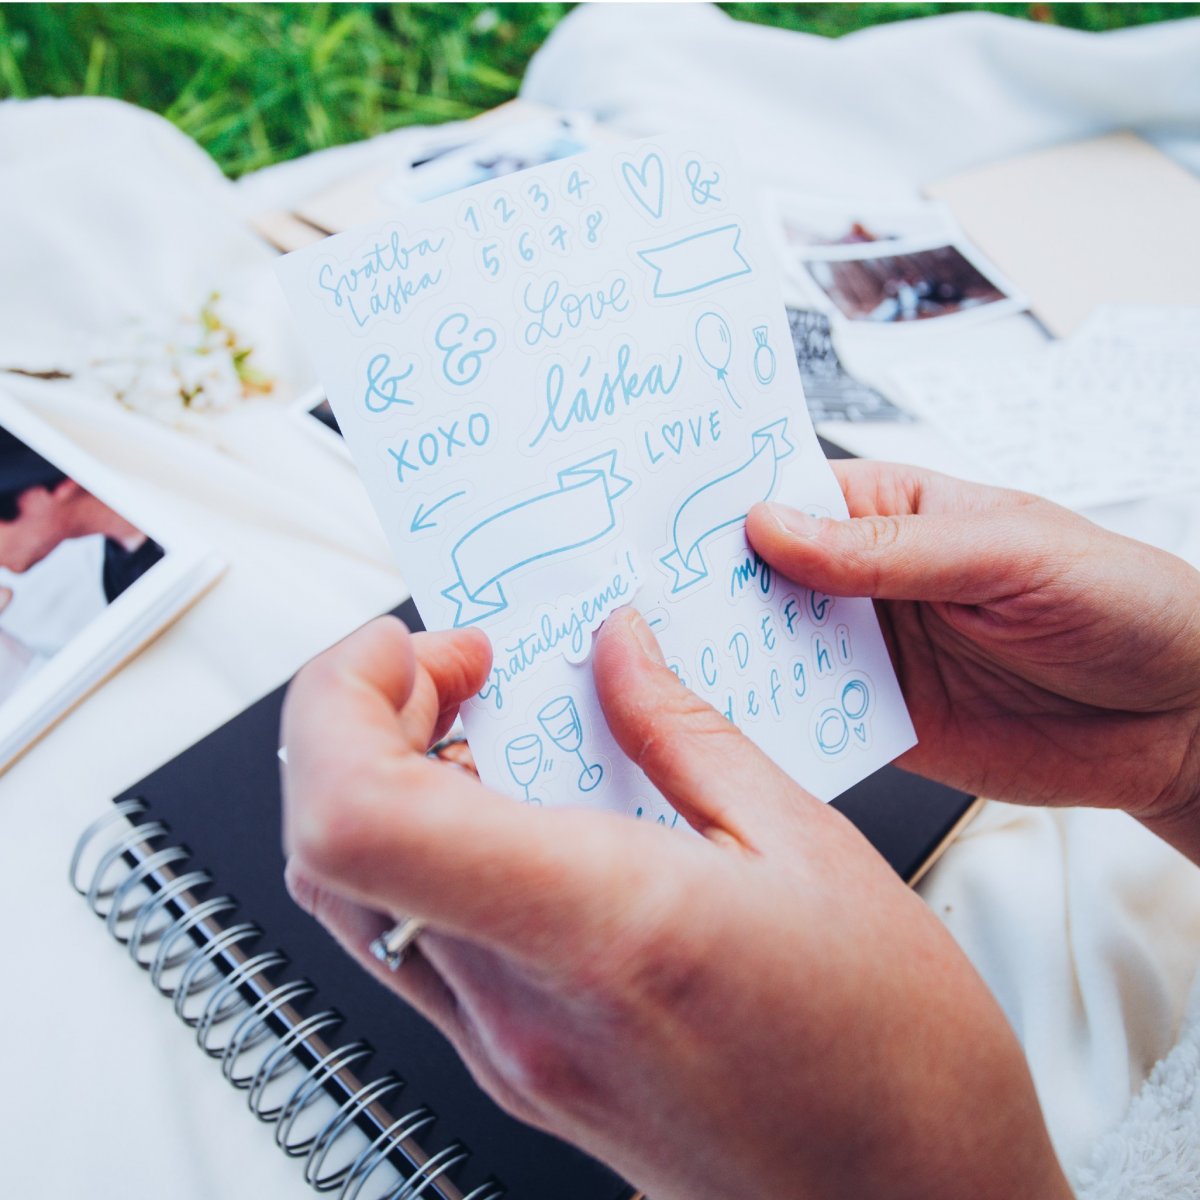 Svatba
Láska
1 2 3 4
5 6 7 8
&
& &
Love
láska
XOXO
LOVE
my
Gratulujeme!
C D E F G
d e f g h i